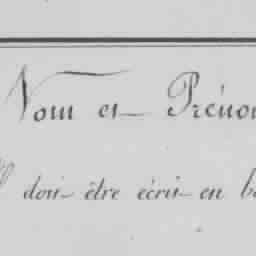 Nom et Préno
doit être écrit en b